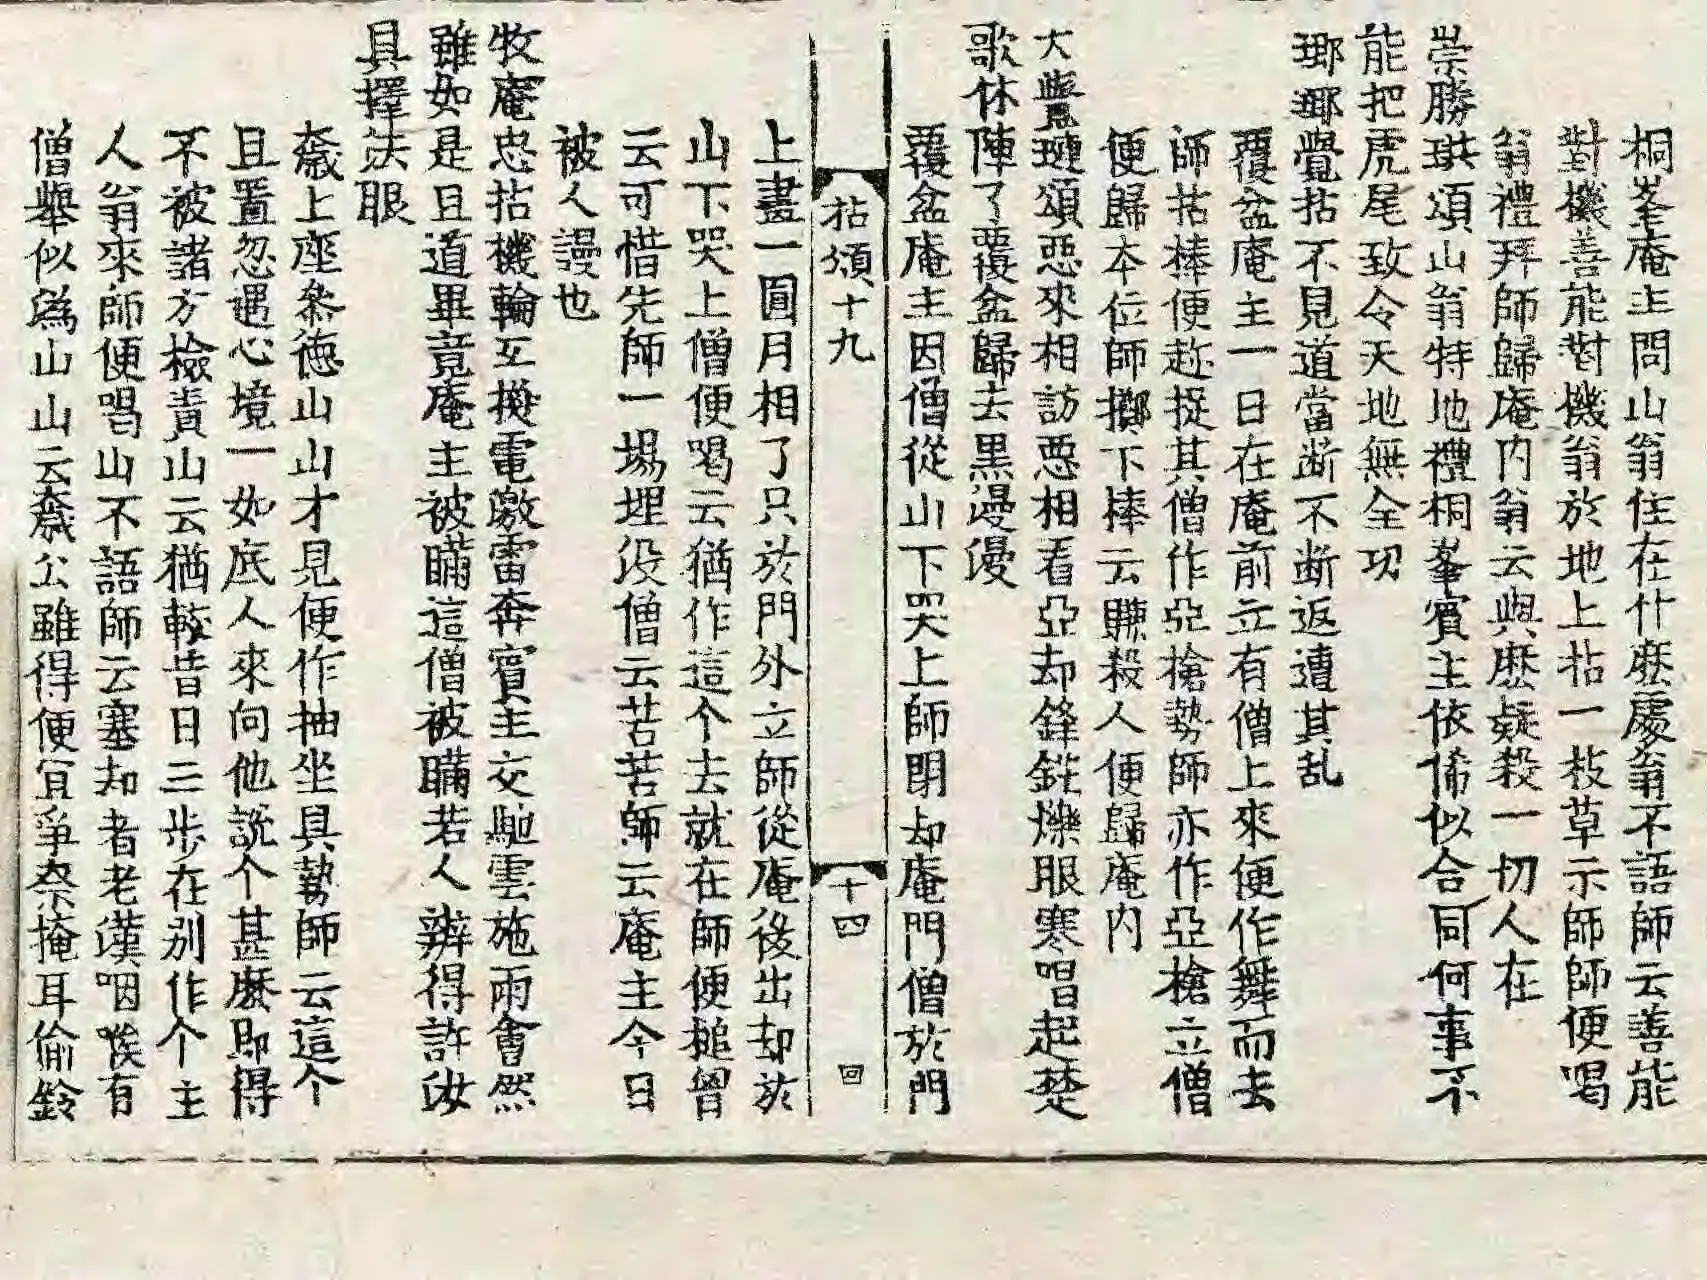 桐峯庵主問山翁住在什麽處翁不語師云善能
對機善能對機翁於地上拈一枝草示師師便喝
翁禮拜師歸庵内翁云與麽疑殺一切人在
崇勝珙頌山翁特地禮桐峯賓主依俙似合同何事不
能把虎尾致令天地無全功
瑯瑘覺拈不見道當断不断返遭其乱
覆盆庵主一日在庵前立有僧上來便作舞而去
師拈棒便趂捉其僧作亞槍勢師亦作亞槍立僧
便歸本位師擲下棒云賺殺人便歸庵内
大覺璉頌惡來相訪惡相看亞却鋒鋩爍眼寒唱起楚
歌休陣了覆盆歸去黒漫漫
覆盆庵主因僧從山下哭上師閉却庵門僧於門
拈頌十九 十四 回
上畫一圓月相了只於門外立師從庵後出却於
山下哭上僧便喝云猶作這个去就在師便搥胷
云可惜先師一場埋没僧云苦苦師云庵主今日
被人謾也
牧庵忠拈機輪互換電激雷奔賓主交馳雲施雨會然
雖如是且道畢竟庵主被瞞這僧被瞞若人辨得許汝
具擇法眼
奯上座叅德山山才見便作抽坐具勢師云這个
且置忽遇心境一如底人來向他説个甚麽即得
不被諸方檢責山云猶較昔日三步在別作个主
人翁來師便喝山不語師云塞却者老漢咽喉有
僧舉似爲山山云奯公雖得便宜爭奈掩耳偷鈴